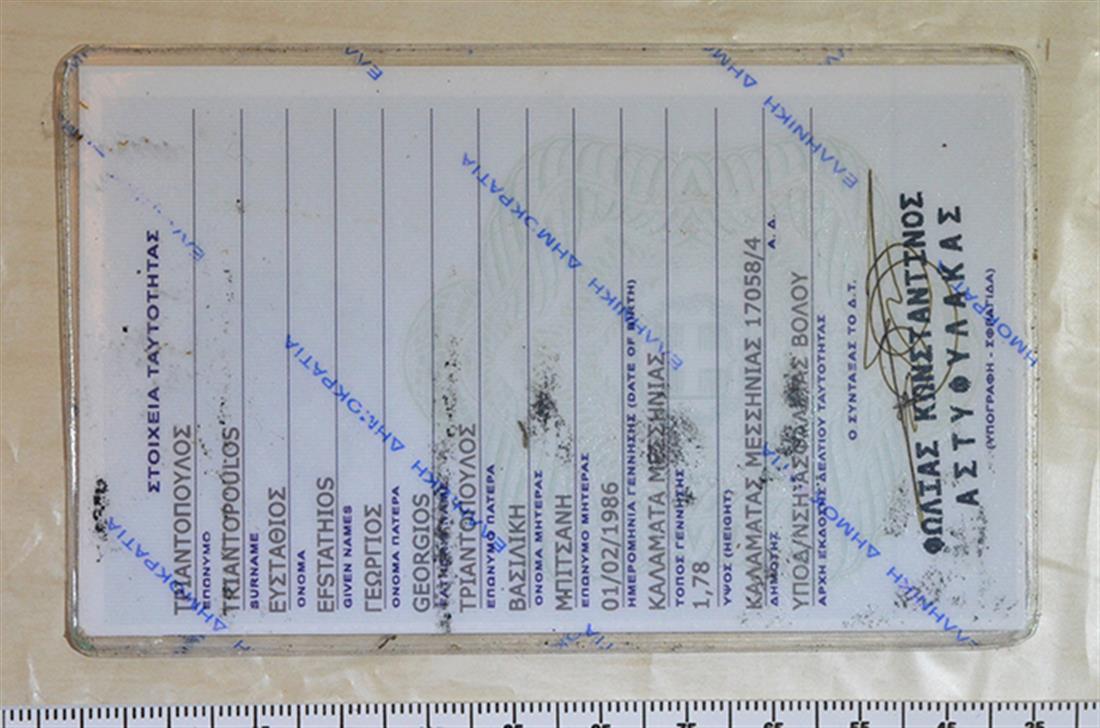 ΣΤΟΙΧΕΙΑ ΤΑΥΤΟΤΗΤΑΣ
ΤΡΙΑΝΤΟΠΟΥΛΟΣ
ΕΠΩΝΥΜΟ
TRIANTOPOULOS
SURNAME
ΕΥΣΤΑΘΙΟΣ
ΟΝΟΜΑ
EFSTATHIOS
GIVEN NAMES
ΓΕΩΡΓΙΟΣ
ΟΝΟΜΑ ΠΑΤΕΡΑ
GEORGIOS
ΤΡΙΑΝΤΟΠΟΥΛΟΣ
ΕΠΩΝΥΜΟ ΠΑΤΕΡΑ
ΒΑΣΙΛΙΚΗ
ΟΝΟΜΑ ΜΗΤΕΡΑΣ
ΜΠΙΤΣΑΝΗ
ΕΠΩΝΥΜΟ ΜΗΤΕΡΑΣ
01/02/1986
ΗΜΕΡΟΜΗΝΙΑ ΓΕΝΝΗΣΗΣ (DATE OF BIRTH)
ΚΑΛΑΜΑΤΑ ΜΕΣΣΗΝΙΑΣ
ΤΟΠΟΣ ΓΕΝΝΗΣΗΣ
1,78
ΥΨΟΣ (HEIGHT)
ΚΑΛΑΜΑΤΑΣ ΜΕΣΣΗΝΙΑΣ 17058/4
ΔΗΜΟΤΗΣ Α. Δ.
ΥΠΟΔ/ΝΣΗ ΑΣΦΑΛΕΙΑΣ ΒΟΛΟΥ
ΑΡΧΗ ΕΚΔΟΣΗΣ ΔΕΛΤΙΟΥ ΤΑΥΤΟΤΗΤΑΣ
Ο ΣΥΝΤΑΞΑΣ ΤΟ Δ.Τ.
ΚΩΝΣΤΑΝΤΙΝΟΣ
ΑΣΤΥΦΥΛΑΚΑΣ
(ΥΠΟΓΡΑΦΗ - ΣΦΡΑΓΙΔΑ)
ΕΛΛΗΝΙΚΗ ΔΗΜΟΚΡΑΤΙΑ